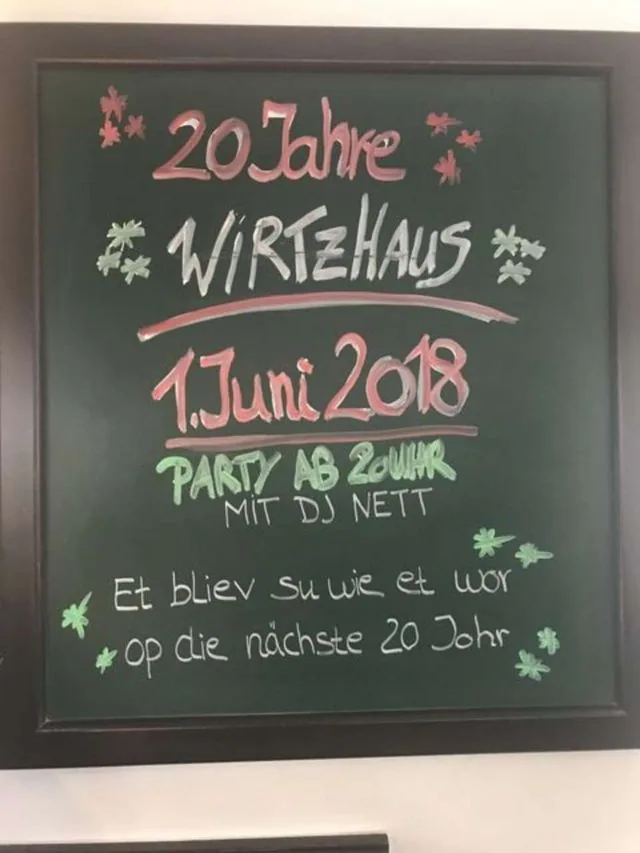 20 Jahre
WiRTZHAUS
1. Juni 2018
PARTY AB 20 UHR
MiT DJ NETT
Et bliev su wie et wor
op die nächste 20 Johr